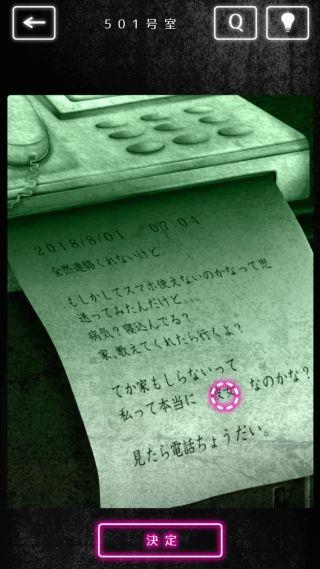 501号室
Q
2018/8/01 07:04
全然連絡くれないけど、
もしかしてスマホ使えないのかなって思
送ってみたんだけど…
病気？寝込んでる？
家、教えてくれたら行くよ？
てか家もしらないって
私って本当に彼女なのかな？
見たら電話ちょうだい。
決定